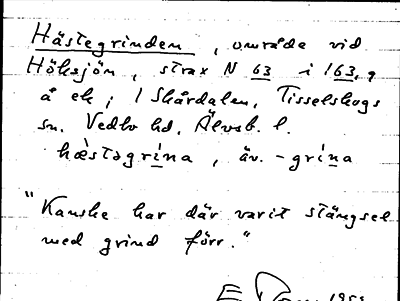 Hästegrinden, område vid
Höksjön, strax N 63 i 163,9
å ek; i Skårdalen, Tisselskogs
sn. Vedbo hd, Älvsb. l.
hæ̀stəgrína, äv. -grína
"Kanske har där varit stängsel
med grind förr."
1955